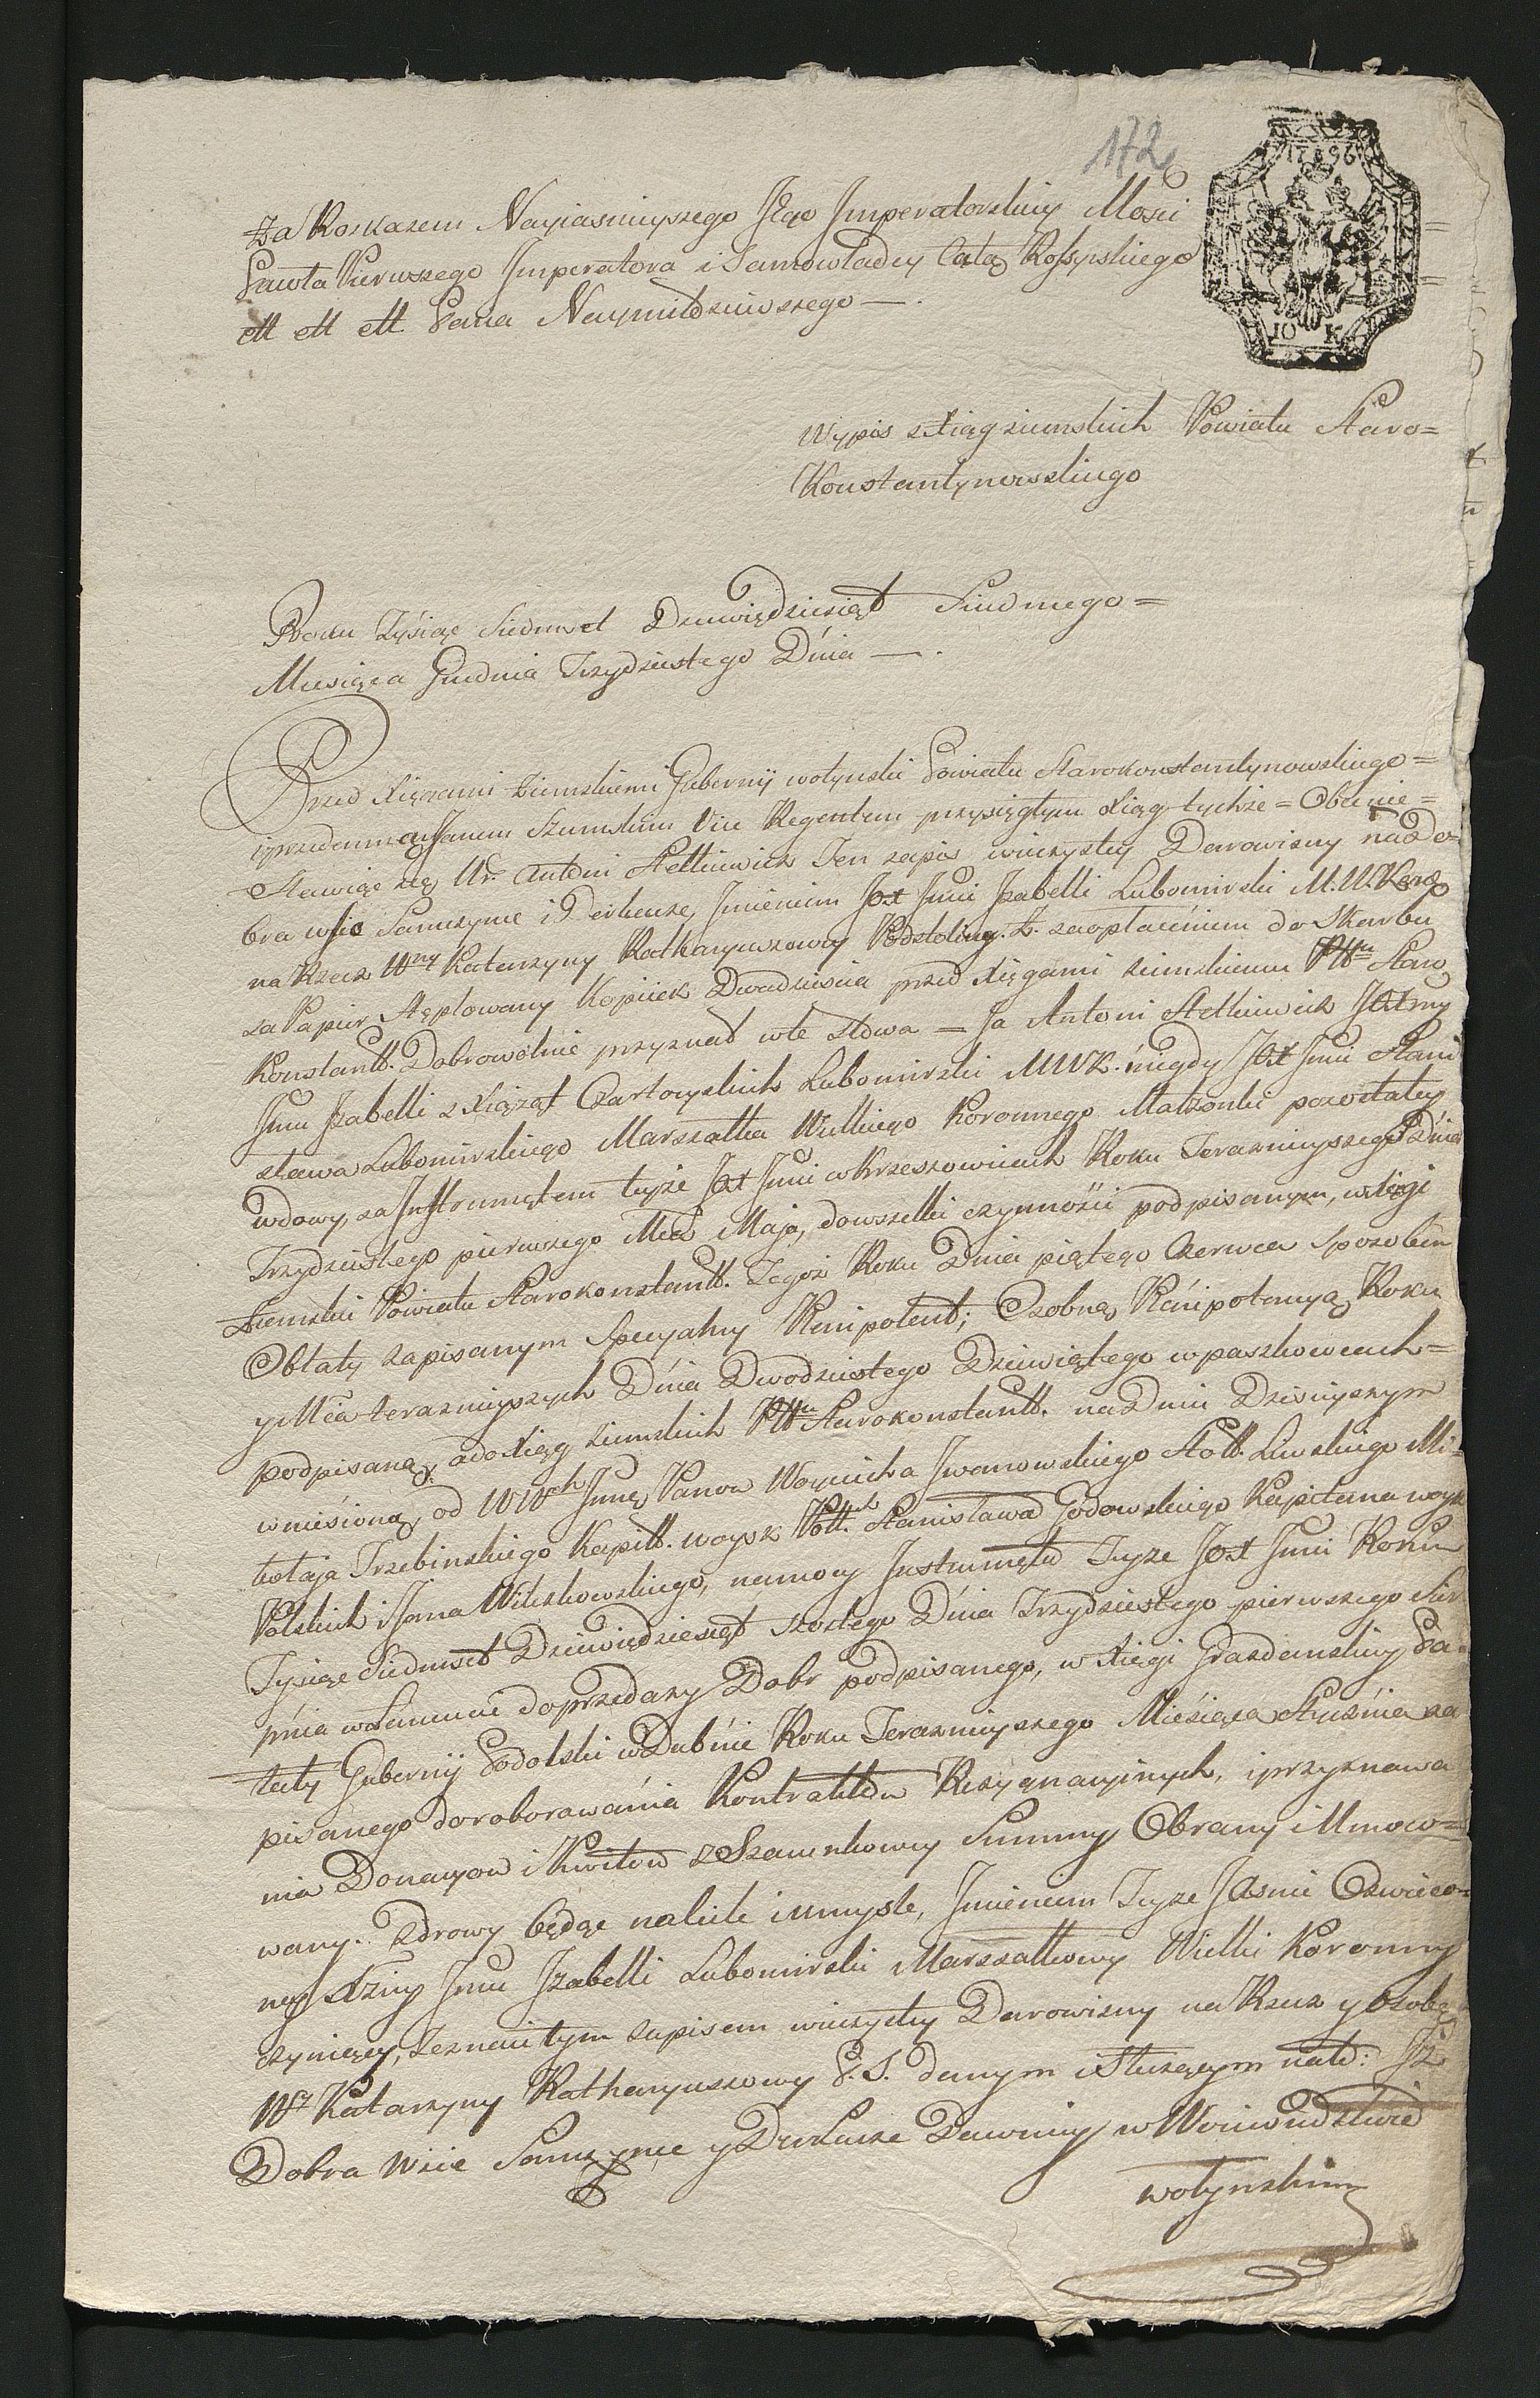 172
1796
10 K
Za Roskazem Nayiasnieyszego JEgo Imperatorskiey Mosci
Pawła Pierwszego Imperatora i Samowładcy Całą Rossyiskiego
ett ett ett Pana Naymiłościwszego —.
Wypis z Xiąg ziemskich Powiatu Staro=
Konstantynowskiego
Roku Tysiąc Siedmset Dziewiędziesiąt Siudmego =
Miesiąca Grudnia Trzydziestego Dnia —.
Przed Xięgami Ziemskiemi Gubernij wołynski Powiatu Starokonstantynowskiego =
i przedemną Janem Szumskim Vice Regentem przysięgłym Xiąg tychże = Obecnie =
Stawiąc się Ur. Antoni Stetkiewicz Ten zapis wieczystey Darowizny na Do=
bra wsie Samczynce i Derkacze, Imieniem JOX Jmci Izabelli Lubomirski M. W. Kor.
na Rzecz Wney Katarzyny Ratharyuszowey Podstoliney. Z. zaopłaceniem do Skarbu
za Papier Stęplowany Kopiiek Dwadzieścia przed Xięgami ziemskiemi Pttu Staro
Konstantt. Dobrowolnie przyznał w te słowa — Ja Antoni Stetkiewicz JOXney
Jmci Izabelli z Xiąząt Czartoryskich Lubomirski MWK. niegdy JOX Jmci Stani
sława Lubomirskiego Marszałka Wielkiego Koronnego Małżonki pozostałey
wdowy, za Instrumętem teyże JOX Jmci w Krzeszowicach Roku Teraznieyszego Dnia
Trzydziestego pierwszego Mca Maja, do wszelki czynności podpisanym, w Xięgi
Ziemskie Powiatu Starokonstantt. Tegoż Roku Dnia piątego Czerwca Sposobem
Oblaty zapisanym Specyalny Plenipotent; Osobną Plenipotencyą Roku
y Mca teraznieyszych Dnia Dwodziestego Dziewiątego w paszkowcach =
podpisaną, a do Xiąg ziemskich Pttu Starokonstantt. na Dniu Dzisieyszym
wniesioną, od WWch Jmcę Panow Woyciecha Iwanowskiego Stolt. Liwskiego Mi=
kołaja Trzebinskiego Kapitt. woysk Poll. Stanisława Godowskiego Kapitana woysk
Polskich i Jana Witzkowskiego, na mocy Instrumętu Teyże JOX Jmci Roku
Tysiąc Siedmset Dziewiędziesiąt szostego Dnia Trzydziestego pierwszego Sier
pnia w Łancucie do przedaży Dobr podpisanego, w Xięgi Grazdanskiey Pa=
łaty Gubernij Podolski w Dubnie Roku Teraznieyszego Miesiąca Stycznia za
pisanego do roborowania Kontraktów Rezygnacyinych, i przyznawa
nia Donacyow i Kwitow z Szacunkowey Summy Obrany i Umoco=
wany. Zdrowy będąc na ciele i umysle, Imieniem Teyże JAsnie Oswieco=
ney Xżney Jmci Izabelli Lubomirski Marszałkowy Wielki Koronny
czyniący, Zeznaię tym zapisem wieczystey Darowizny na Rzecz y osobę
Wy Katarzyny Ratharyuszowy P. S. danym i Służącym nato: Jż
Dobra wsie Samczynce y Derkacze Dawniey w Woiewudztwie
wołynskim